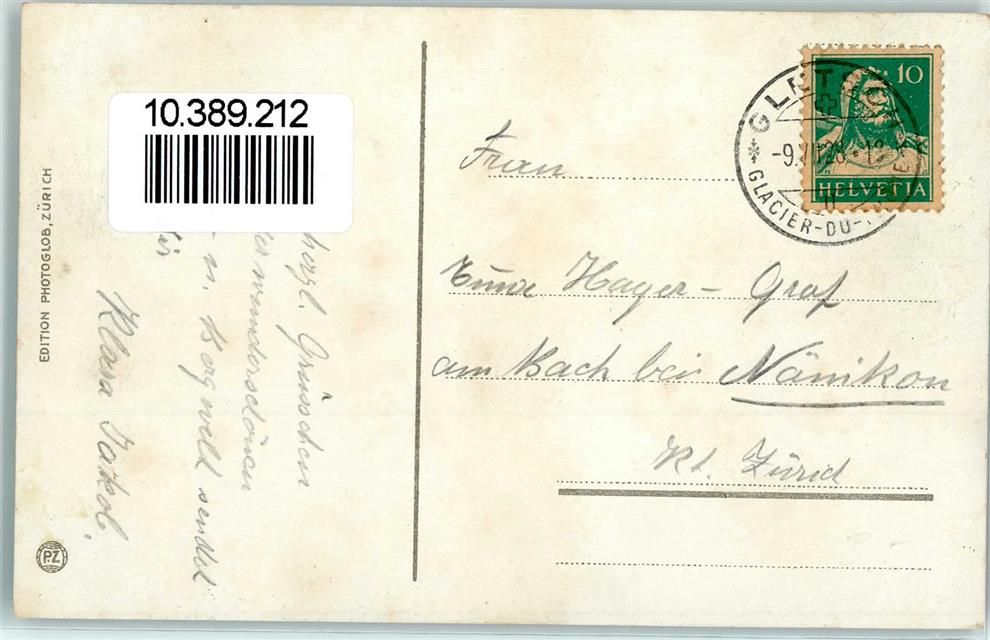 10.389.212
EDITION PHOTOGLOB, ZÜRICH
PZ
herzl. Grüsschen
wunderschönen
u. Bergwelt sendet
Klara Jakob.
10
HELVETIA
GLETSCH
-9.VII.28.-12
GLACIER-DU-
Frau
Hager - Graf
am Bach bei Nänikon
Kt. Zürich